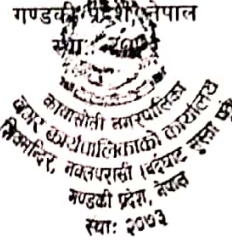 गण्डकी प्रदेश, नेपाल
स्था: २०७३
कावासोती नगरपालिका
नगर कार्यपालिकाको कार्यालय
शिवमन्दिर, नवलपरासी (बर्दघाट सुस्ता पूर्व)
गण्डकी प्रदेश, नेपाल
स्था: २०७३